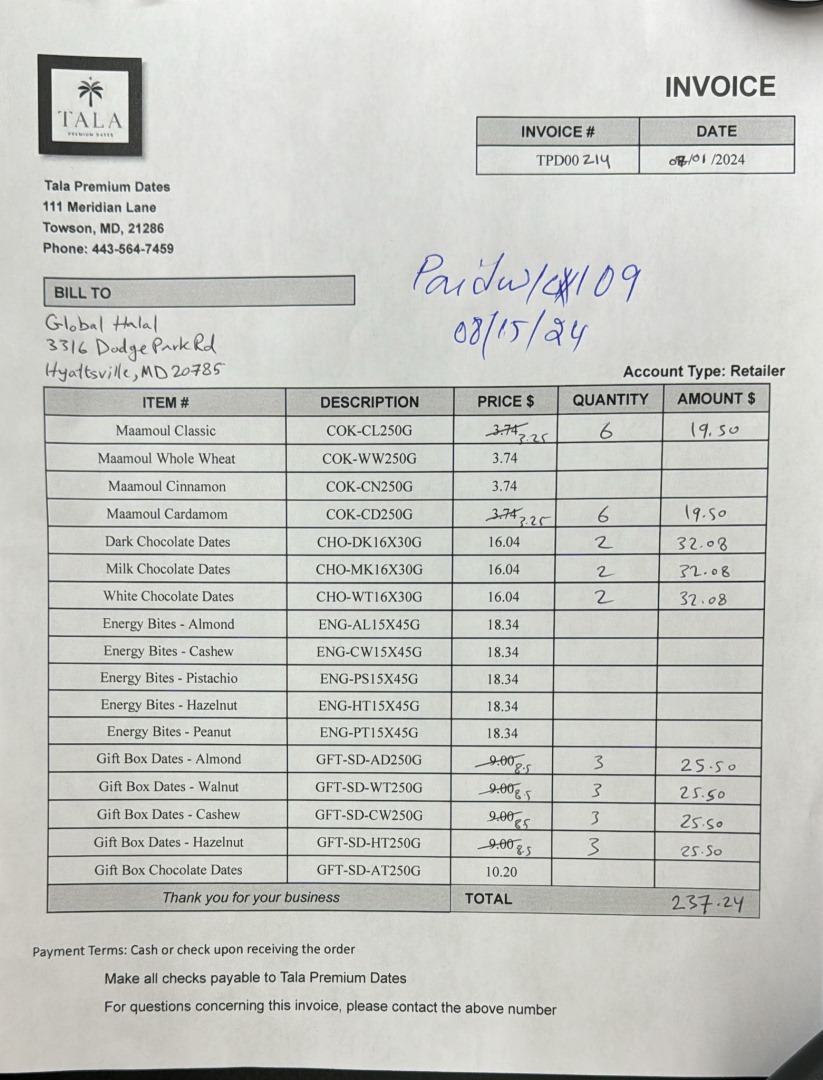 TALA
PREMIUM DATES
INVOICE
INVOICE # DATE
TPD00 214 08/01 /2024
Tala Premium Dates
111 Meridian Lane
Towson, MD, 21286
Phone: 443-564-7459
Paid w/ck 109
08/15/24
BILL TO
Global Halal
3316 Dodge Park Rd
Hyattsville, MD 20785
Account Type: Retailer
ITEM # DESCRIPTION PRICE $ QUANTITY AMOUNT $
Maamoul Classic COK-CL250G 3.74 3.25 6 19.50
Maamoul Whole Wheat COK-WW250G 3.74
Maamoul Cinnamon COK-CN250G 3.74
Maamoul Cardamom COK-CD250G 3.74 3.25 6 19.50
Dark Chocolate Dates CHO-DK16X30G 16.04 2 32.08
Milk Chocolate Dates CHO-MK16X30G 16.04 2 32.08
White Chocolate Dates CHO-WT16X30G 16.04 2 32.08
Energy Bites - Almond ENG-AL15X45G 18.34
Energy Bites - Cashew ENG-CW15X45G 18.34
Energy Bites - Pistachio ENG-PS15X45G 18.34
Energy Bites - Hazelnut ENG-HT15X45G 18.34
Energy Bites - Peanut ENG-PT15X45G 18.34
Gift Box Dates - Almond GFT-SD-AD250G 9.00 8.5 3 25.50
Gift Box Dates - Walnut GFT-SD-WT250G 9.00 8.5 3 25.50
Gift Box Dates - Cashew GFT-SD-CW250G 9.00 8.5 3 25.50
Gift Box Dates - Hazelnut GFT-SD-HT250G 9.00 8.5 3 25.50
Gift Box Chocolate Dates GFT-SD-AT250G 10.20
Thank you for your business TOTAL 237.24
Payment Terms: Cash or check upon receiving the order
Make all checks payable to Tala Premium Dates
For questions concerning this invoice, please contact the above number